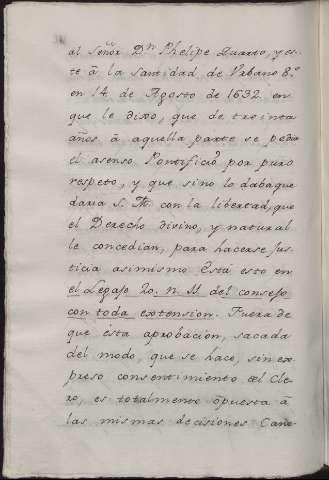 al señor Dn Phelipe Quarto, y es-
te â la Santidad de Urbano 8.º
en 14 de Agosto de 1632. en
que le dixo, que de treinta
años â aquella parte se pedia
el asenso Pontificio por puro
respeto, y que sino lo daba que
daria S. M. con la libertad, que
el Derecho divino, y natural
le concedian, para hacerse Jus
ticia asimismo Està esto en
el Legajo 20. n. 11 del consejo
con toda extension. Fuera de
que èsta aprobacion, sacada
del modo, que se hace, sin ex
preso consentimiento del Cle
ro, es totalmente opuesta â
las mismas decisiones Cano-